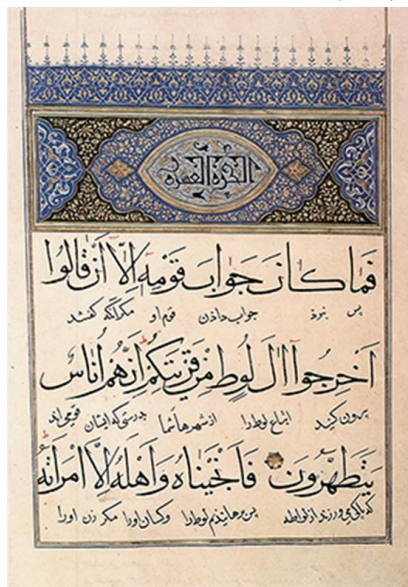 الجزء العشرون
فَمَا كَانَ جَوَابَ قَوْمِهِ إِلَّا أَنْ قَالُوا
پس نبوذ جواب داذن قوم او مکر آنکه کفتند
أَخْرِجُوا آلَ لُوطٍ مِنْ قَرْيَتِكُمْ إِنَّهُمْ أُنَاسٌ
بیرون کنید اتباع لوط را از شهرهاء شما بدرستی که ایشان قومی اند
يَتَطَهَّرُونَ فَأَنْجَيْنَاهُ وَأَهْلَهُ إِلَّا امْرَأَتَهُ
که پاکی می ورزند از لواطه پس برهانیدیم لوط را و کسان او را مکر زن او را